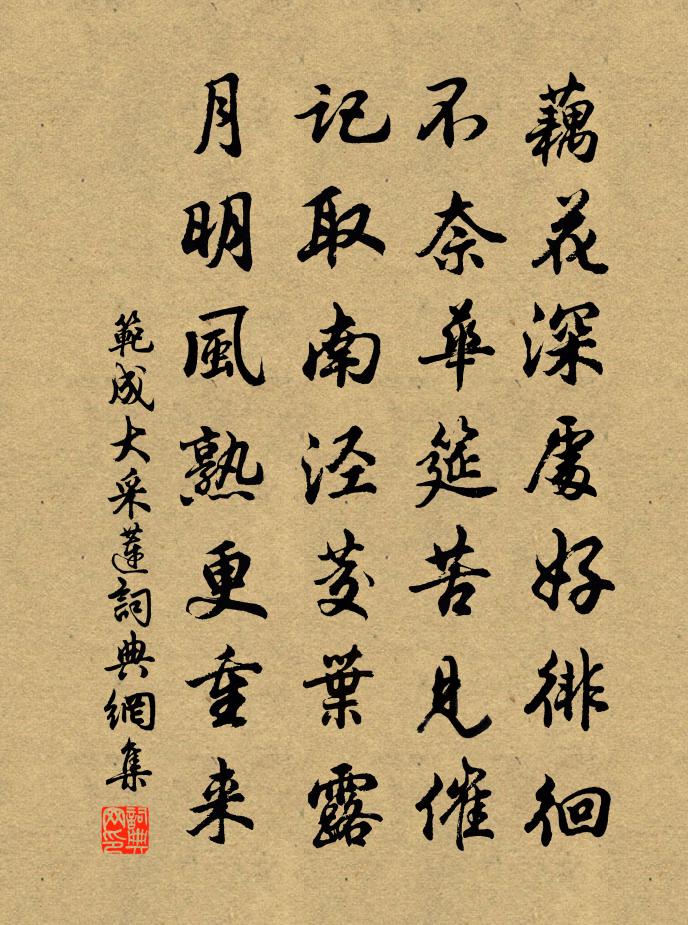 藕花深處好徘徊
不奈華筵苦見催
記取南涇茭葉露
月明風熟更重来
範成大采蓮詞典網集
詞典网印